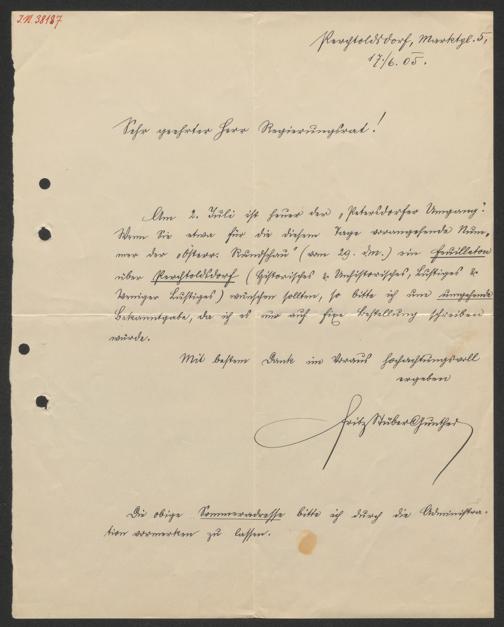 I.N. 38187
Perchtoldsdorf, Marktpl. 5,
17./6. 05.
Sehr geehrter Herr Regierungsrat!
Am 2. Juli ist heuer der „Petersdorfer Umgang".
Wenn Sie etwa für die diesem Tage vorangehende Num-
mer der „Österr. Rundschau" (vom 29. ds.) ein Feuilleton
über Perchtoldsdorf (Historisches & Unhistorisches, Lustiges &
Weniger Lustiges) wünschen sollten, so bitte ich um umgehende
Bekanntgabe, da ich es nur auf fixe Bestellung schreiben
würde.
Mit bestem Dank im Voraus hochachtungsvoll
ergeben
Fritz Stüber Gunther
Die obige Sommeradresse bitte ich durch die Administra-
tion vormerken zu lassen.